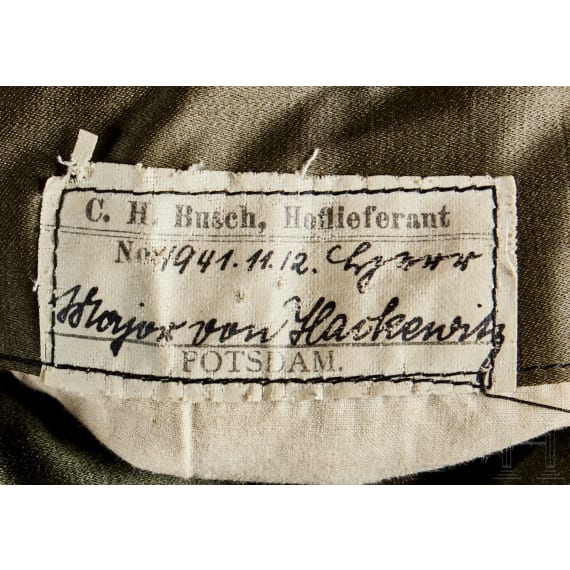 C. H. Busch, Hoflieferant
No. 1941.11.12. Herr
Major von Hackewitz
POTSDAM.